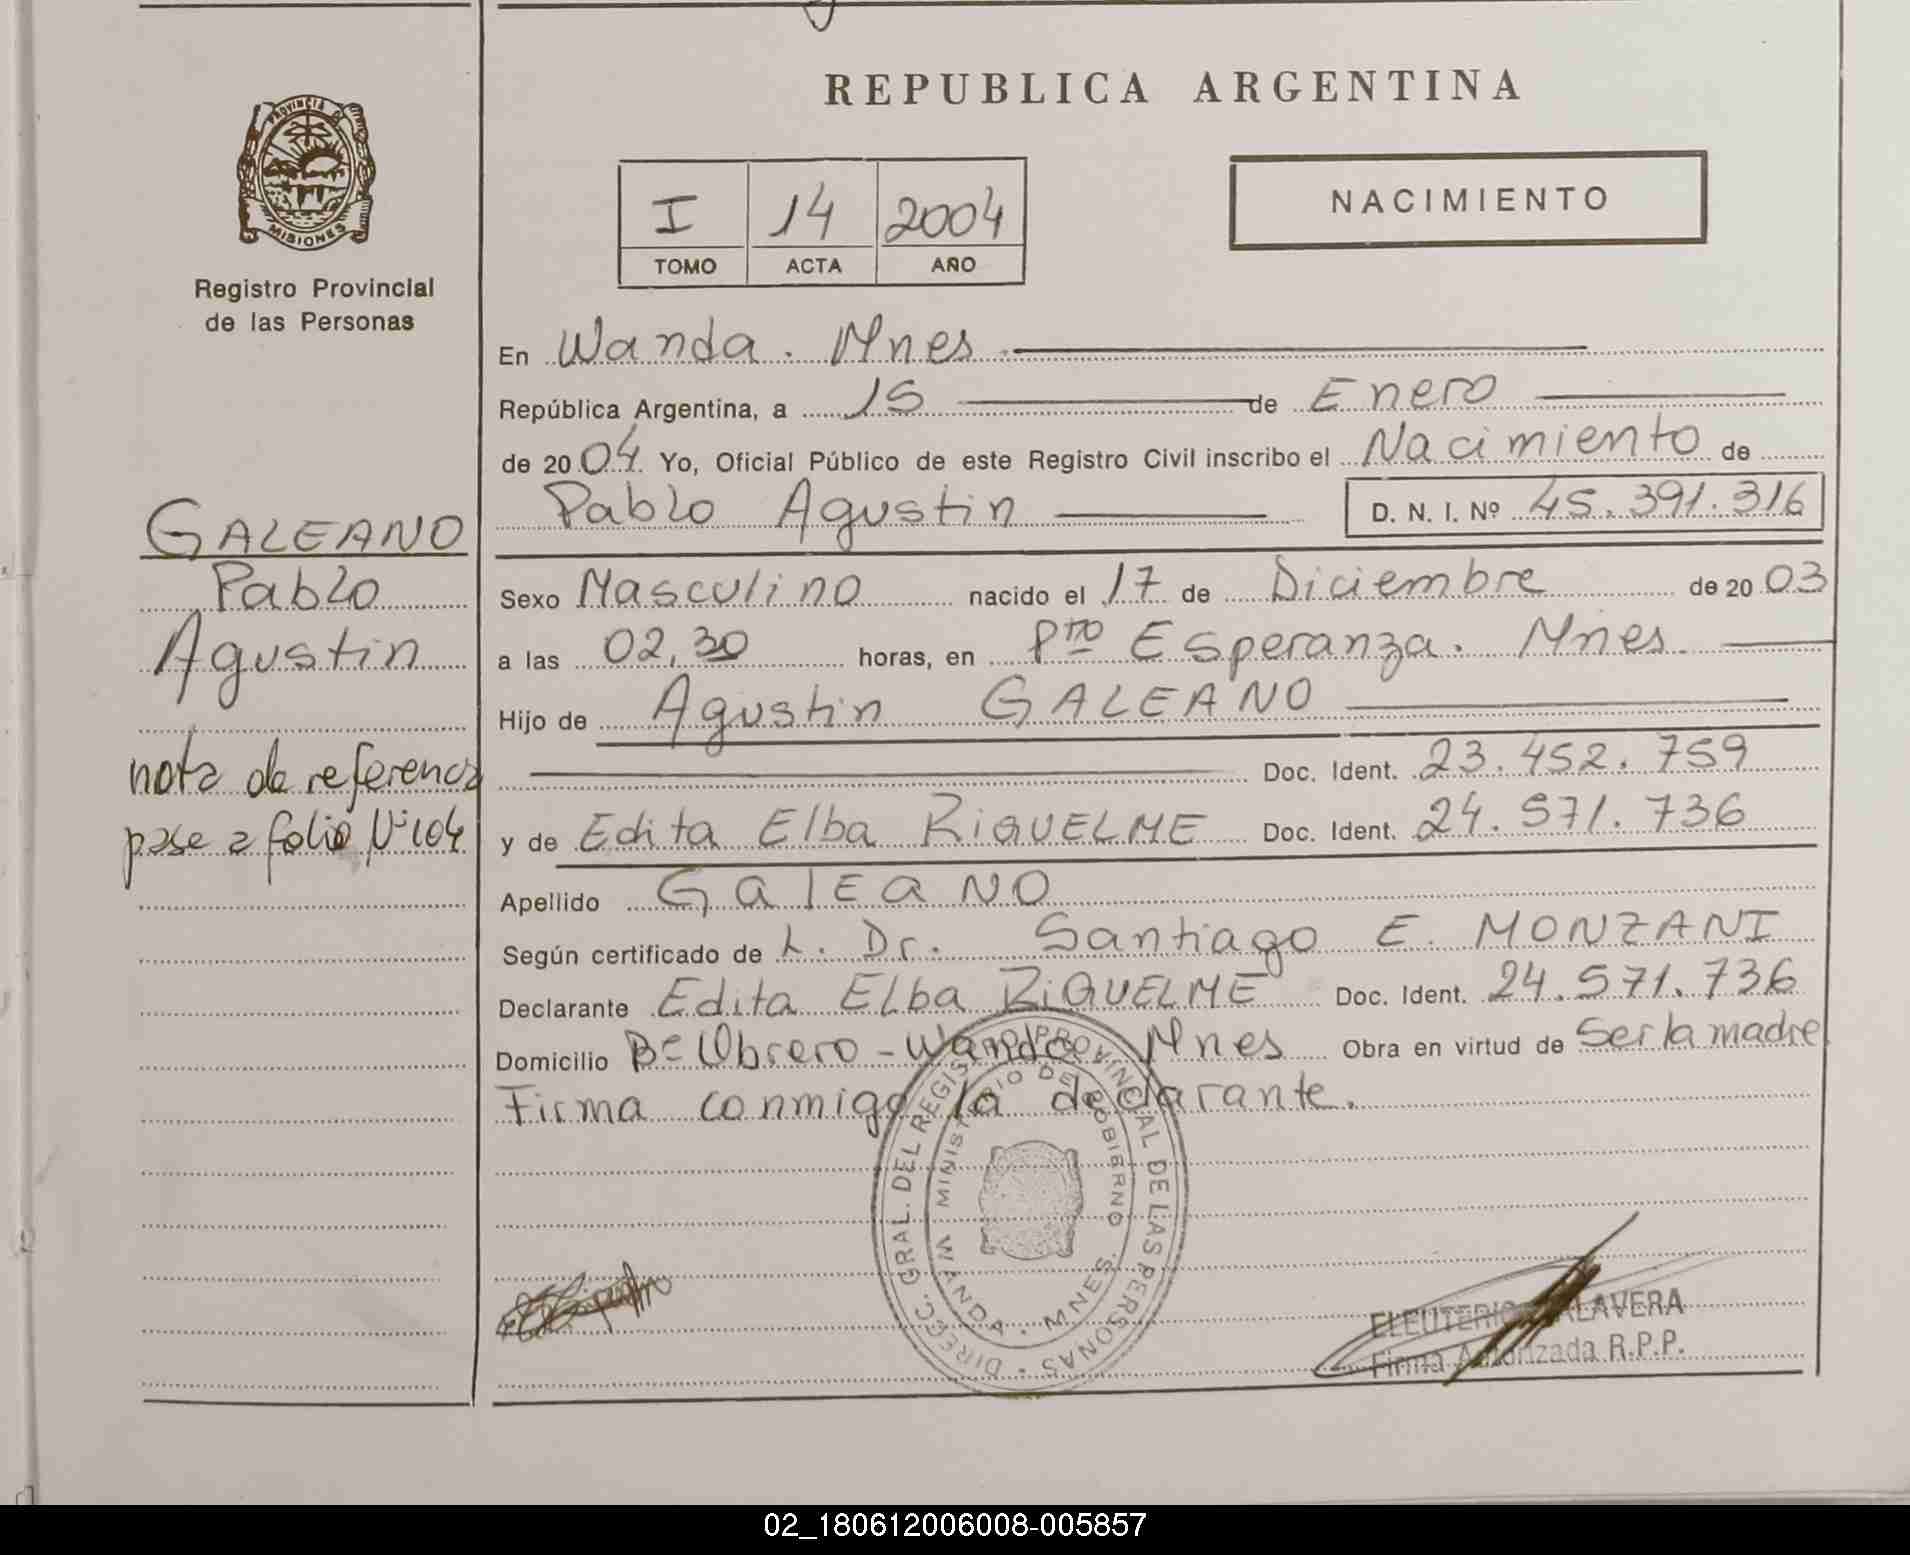 PROVINCIA DE
MISIONES
Registro Provincial
de las Personas
GALEANO
Pablo
Agustin
nota de referencia
pase a folio Nº 104
REPUBLICA ARGENTINA
I 14 2004
TOMO ACTA AÑO
NACIMIENTO
En Wanda. Mnes
República Argentina, a 15 de Enero
de 2004 Yo, Oficial Público de este Registro Civil inscribo el Nacimiento de
Pablo Agustin D. N. I. Nº 45.391.316
Sexo Masculino nacido el 17 de Diciembre de 2003
a las 02,30 horas, en Pto Esperanza. Mnes
Hijo de Agustin GALEANO
Doc. Ident. 23.452.759
y de Edita Elba RIQUELME Doc. Ident. 24.571.736
Apellido GalEaNO
Según certificado de L. Dr. Santiago E. MONZANI
Declarante Edita ELba RIQUELME Doc. Ident. 24.571.736
Domicilio Bº Obrero - Wanda Mnes Obra en virtud de Ser la madre
Firma conmigo la declarante.
DIRECC. GRAL. DEL REGISTRO PROVINCIAL DE LAS PERSONAS
MINISTERIO DE GOBIERNO
WANDA · MNES.
ELEUTERIO TALAVERA
Firma Autorizada R.P.P.
02_180612006008-005857